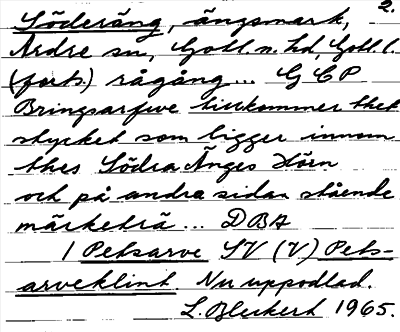 2.
Söderäng, ängsmark,
Ardre sn, Gotl. n. hd, Gotl. l.
(forts.) rågång... GEP
Bringsarfwe tillkommer thet
stycket som ligger innom
thes Södra Änges Hörn
och på andra sidan stående
märketrä ... DBA
1 Petsarve SV (V) Pets-
arveklint. Nu uppodlad.
L. Bleckert 1965.